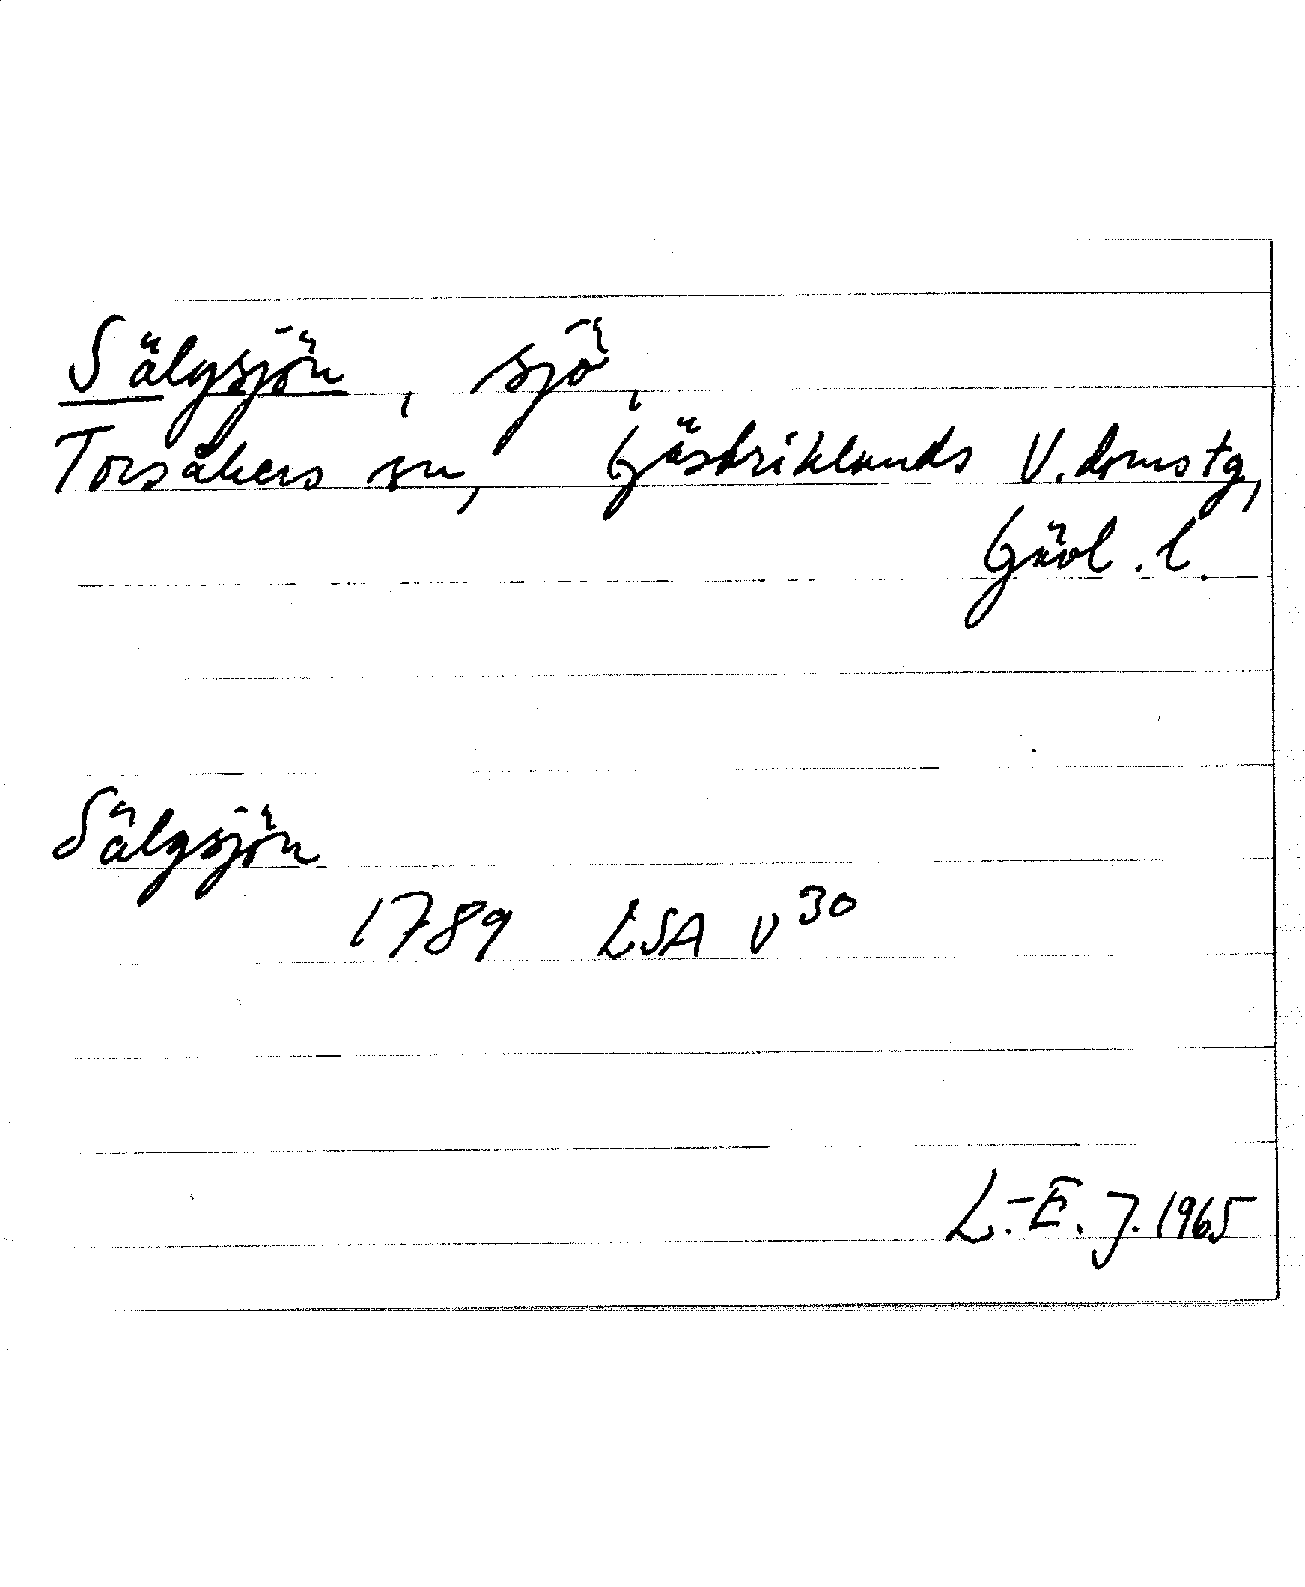 Sälgsjön, sjö,
Torsåkers sn, Gästriklands V. domstg,
Gävl. l.
Sälgsjön
1789 LSA V30
L.-E. J. 1965